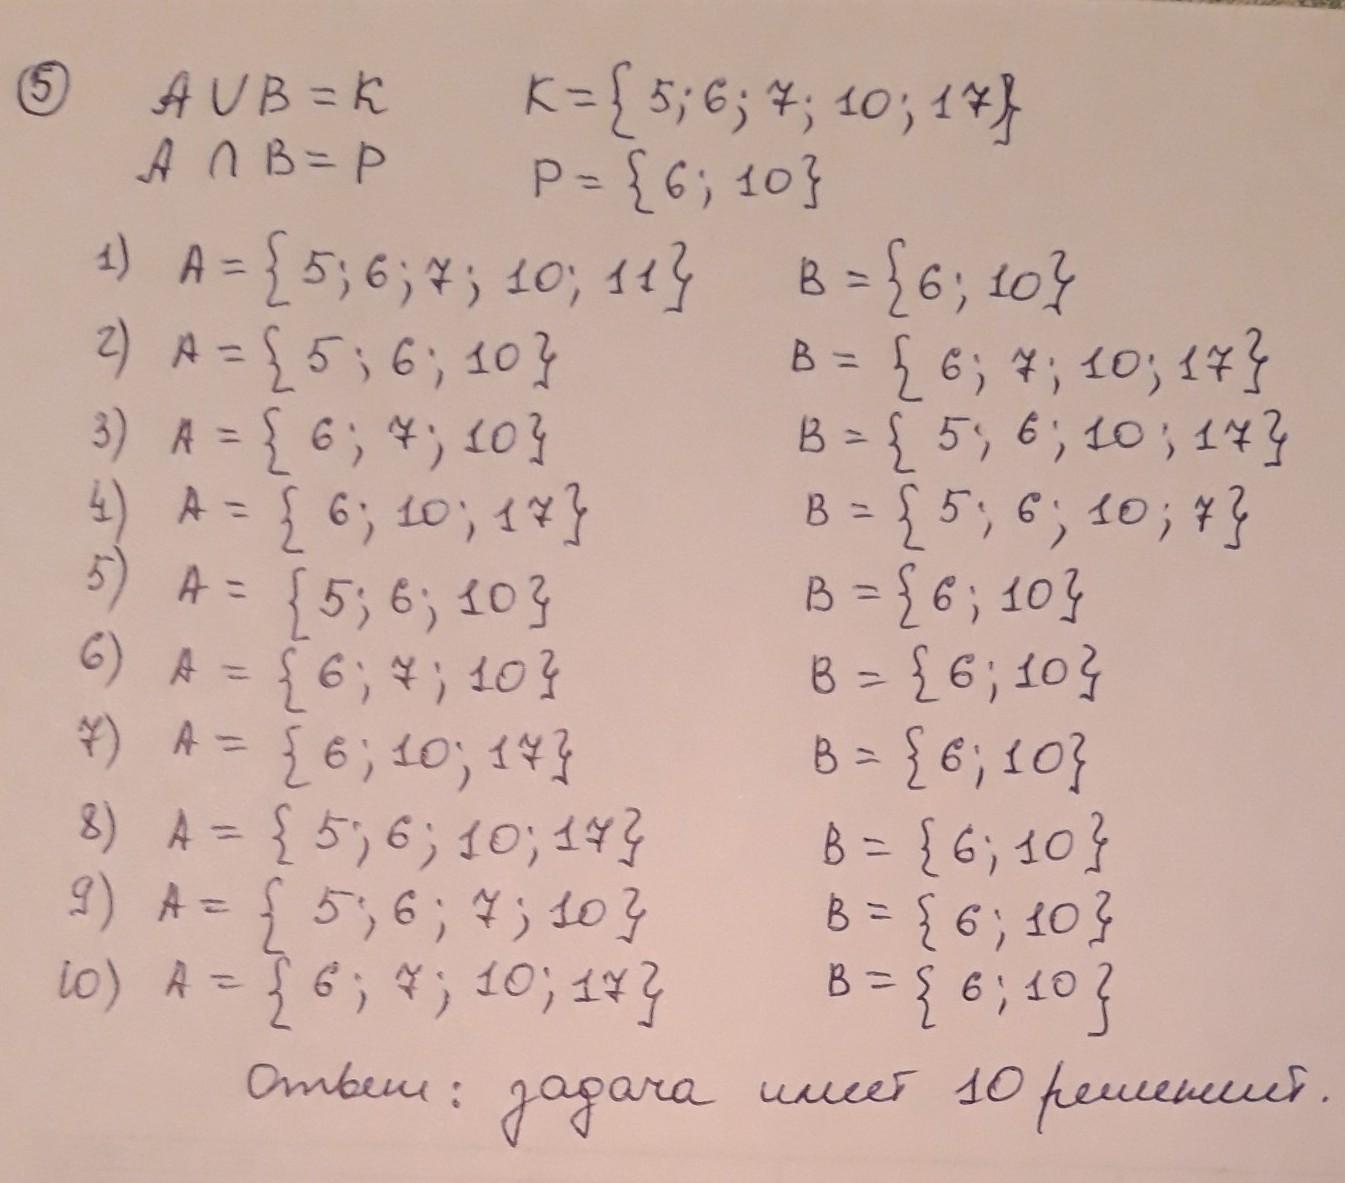 5 A ∪ B = K K = { 5; 6; 7; 10; 17}
A ∩ B = P P = { 6; 10}
1) A = { 5; 6; 7; 10; 11} B = {6; 10}
2) A = { 5; 6; 10} B = { 6; 7; 10; 17}
3) A = { 6; 7; 10} B = { 5; 6; 10; 17}
4) A = { 6; 10; 17} B = { 5; 6; 10; 7}
5) A = { 5; 6; 10} B = {6; 10}
6) A = { 6; 7; 10} B = {6; 10}
7) A = { 6; 10; 17} B = {6; 10}
8) A = { 5; 6; 10; 17} B = { 6; 10}
9) A = { 5; 6; 7; 10} B = { 6; 10}
10) A = { 6; 7; 10; 17} B = { 6; 10}
Ответ: задача имеет 10 решений.